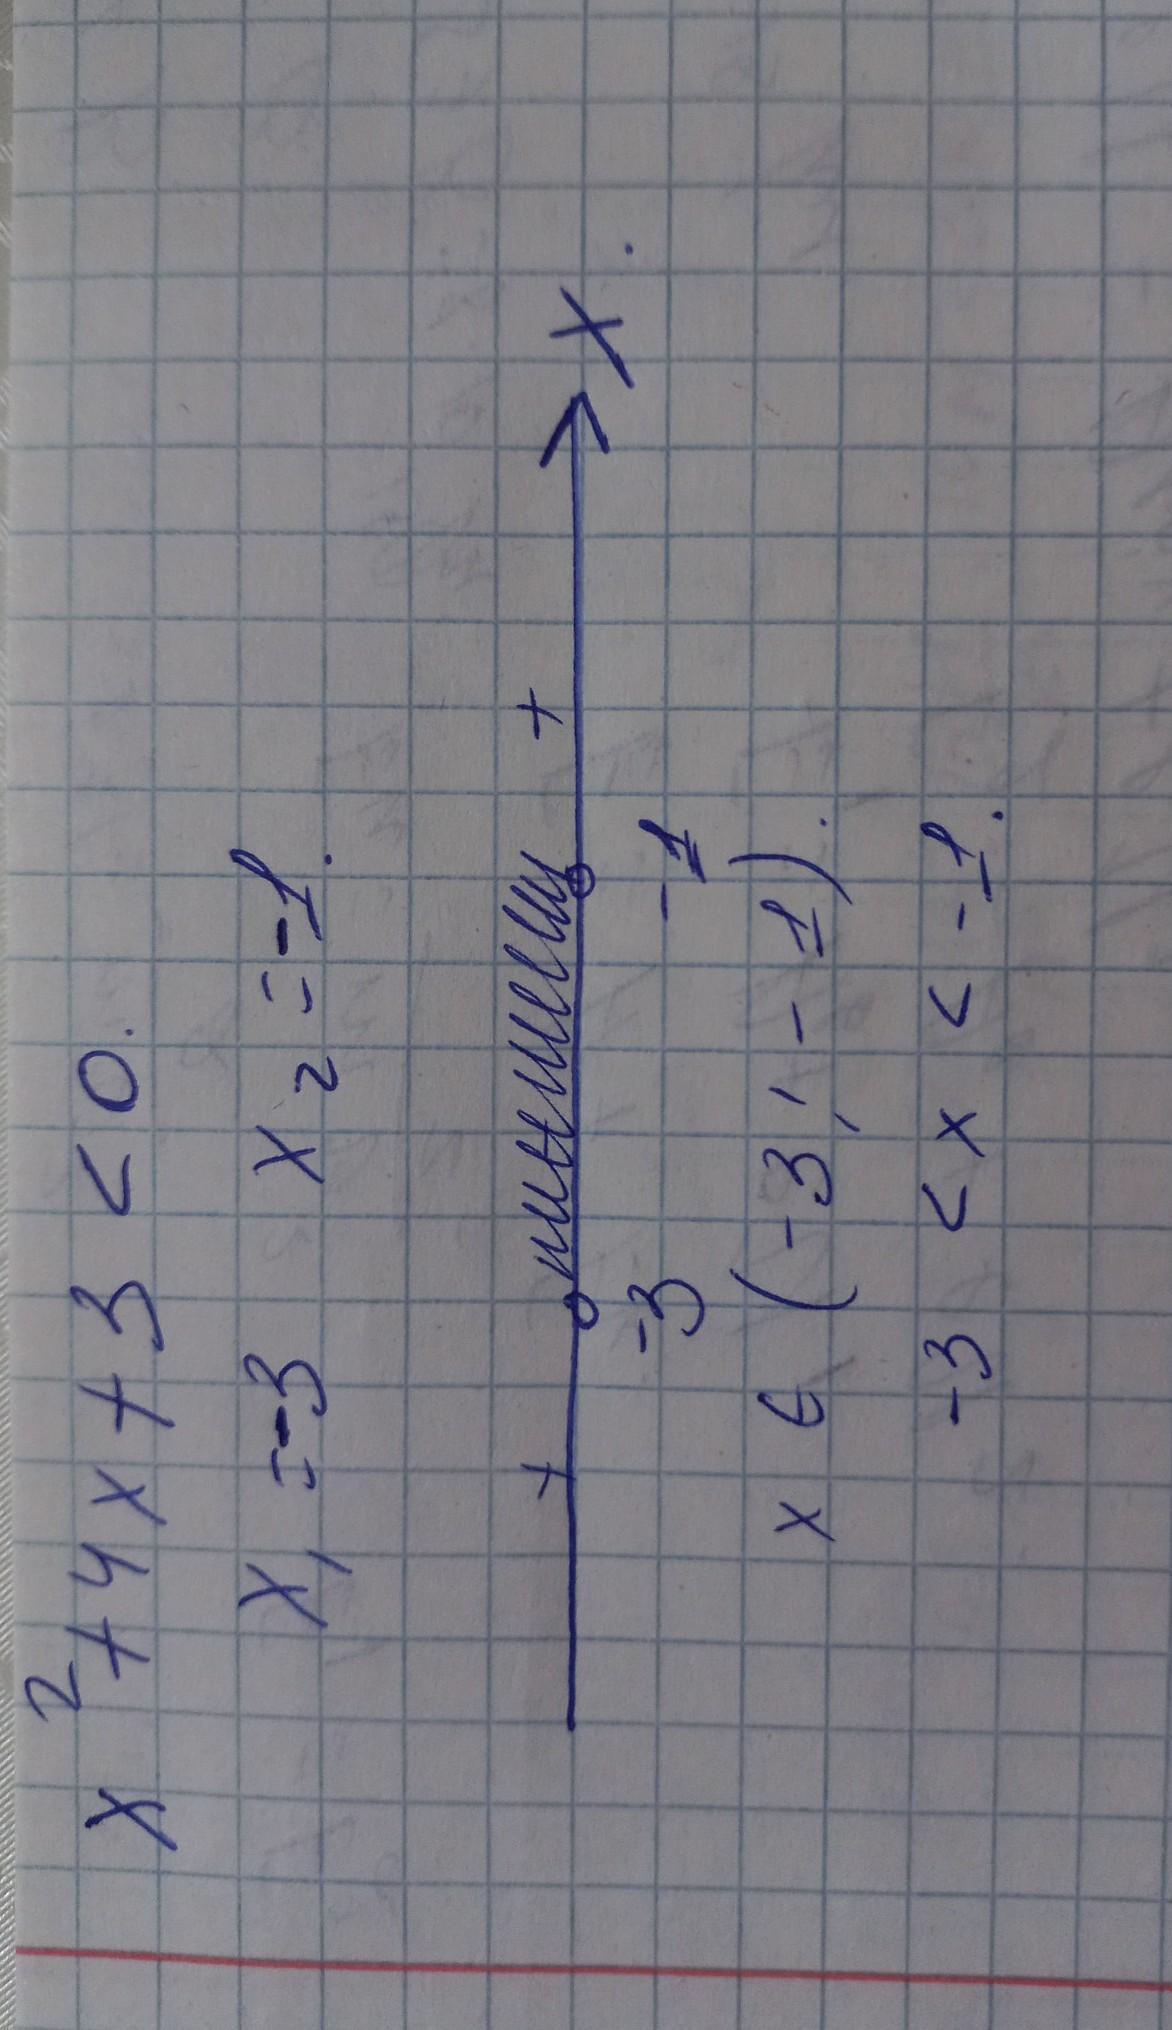 x² + 4x + 3 < 0.
x₁ = -3 x₂ = -1.
+ + x.
-3 -1
x ∈ (-3; -1).
-3 < x < -1.